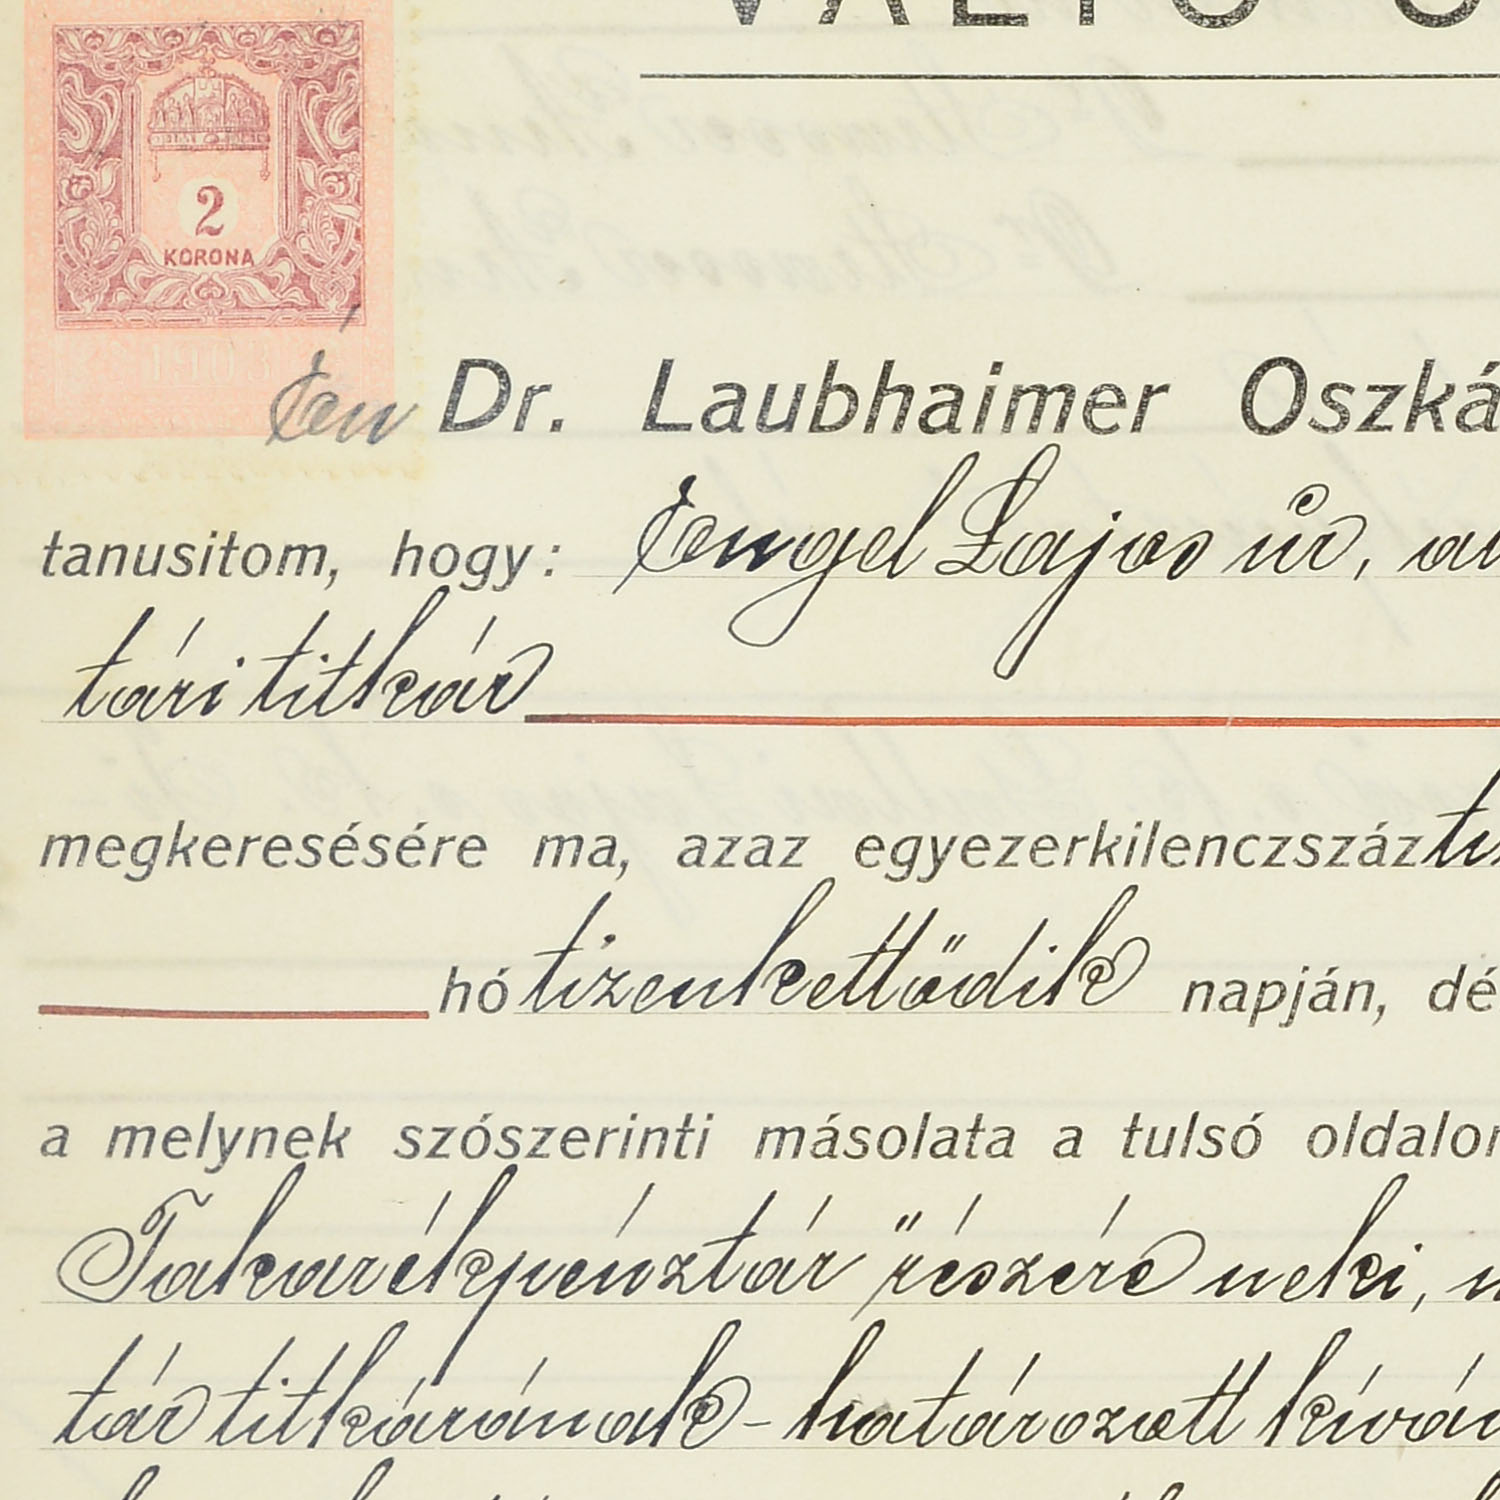 VÁLTÓ Ó
2
KORONA
1903
Én Dr. Laubhaimer Oszká
tanusitom, hogy: Engel Lajos úr, a
tári titkár
megkeresésére ma, azaz egyezerkilenczszáz ti
hó tizenkettődik napján, dé
a melynek szószerinti másolata a tulsó oldalon
Takarékpénztár" részére neki, m
tár titkárának - határozott kíván